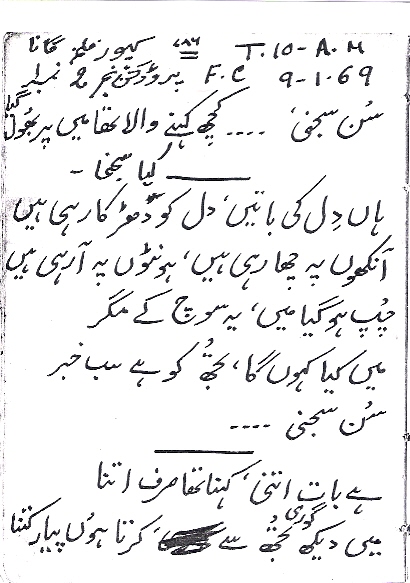 T. 10 - A. M ۷۸۶ کیور فلمز گانا
9 - 1. 69 F. C پروڈکشن نمبر 2
سُن سجنی، .... کچھ کہنے والا تھا میں پر بھُول گیا
کیا سجنا -
ہاں دِل کی باتیں، دل کو دھڑکا رہی ہیں
آنکھوں پہ چھا رہی ہیں، ہونٹوں پہ آرہی ہیں
چپ ہو گیا میں، یہ سوچ کے مگر
میں کیا کہوں گا، تجھُ کو ہے سب خبر
سُن سجنی ....
ہے بات اتنی، کہنا تھا صرف اتنا
میں دیکھ گوری تجھُ سے کرتا ہوں پیار کتنا